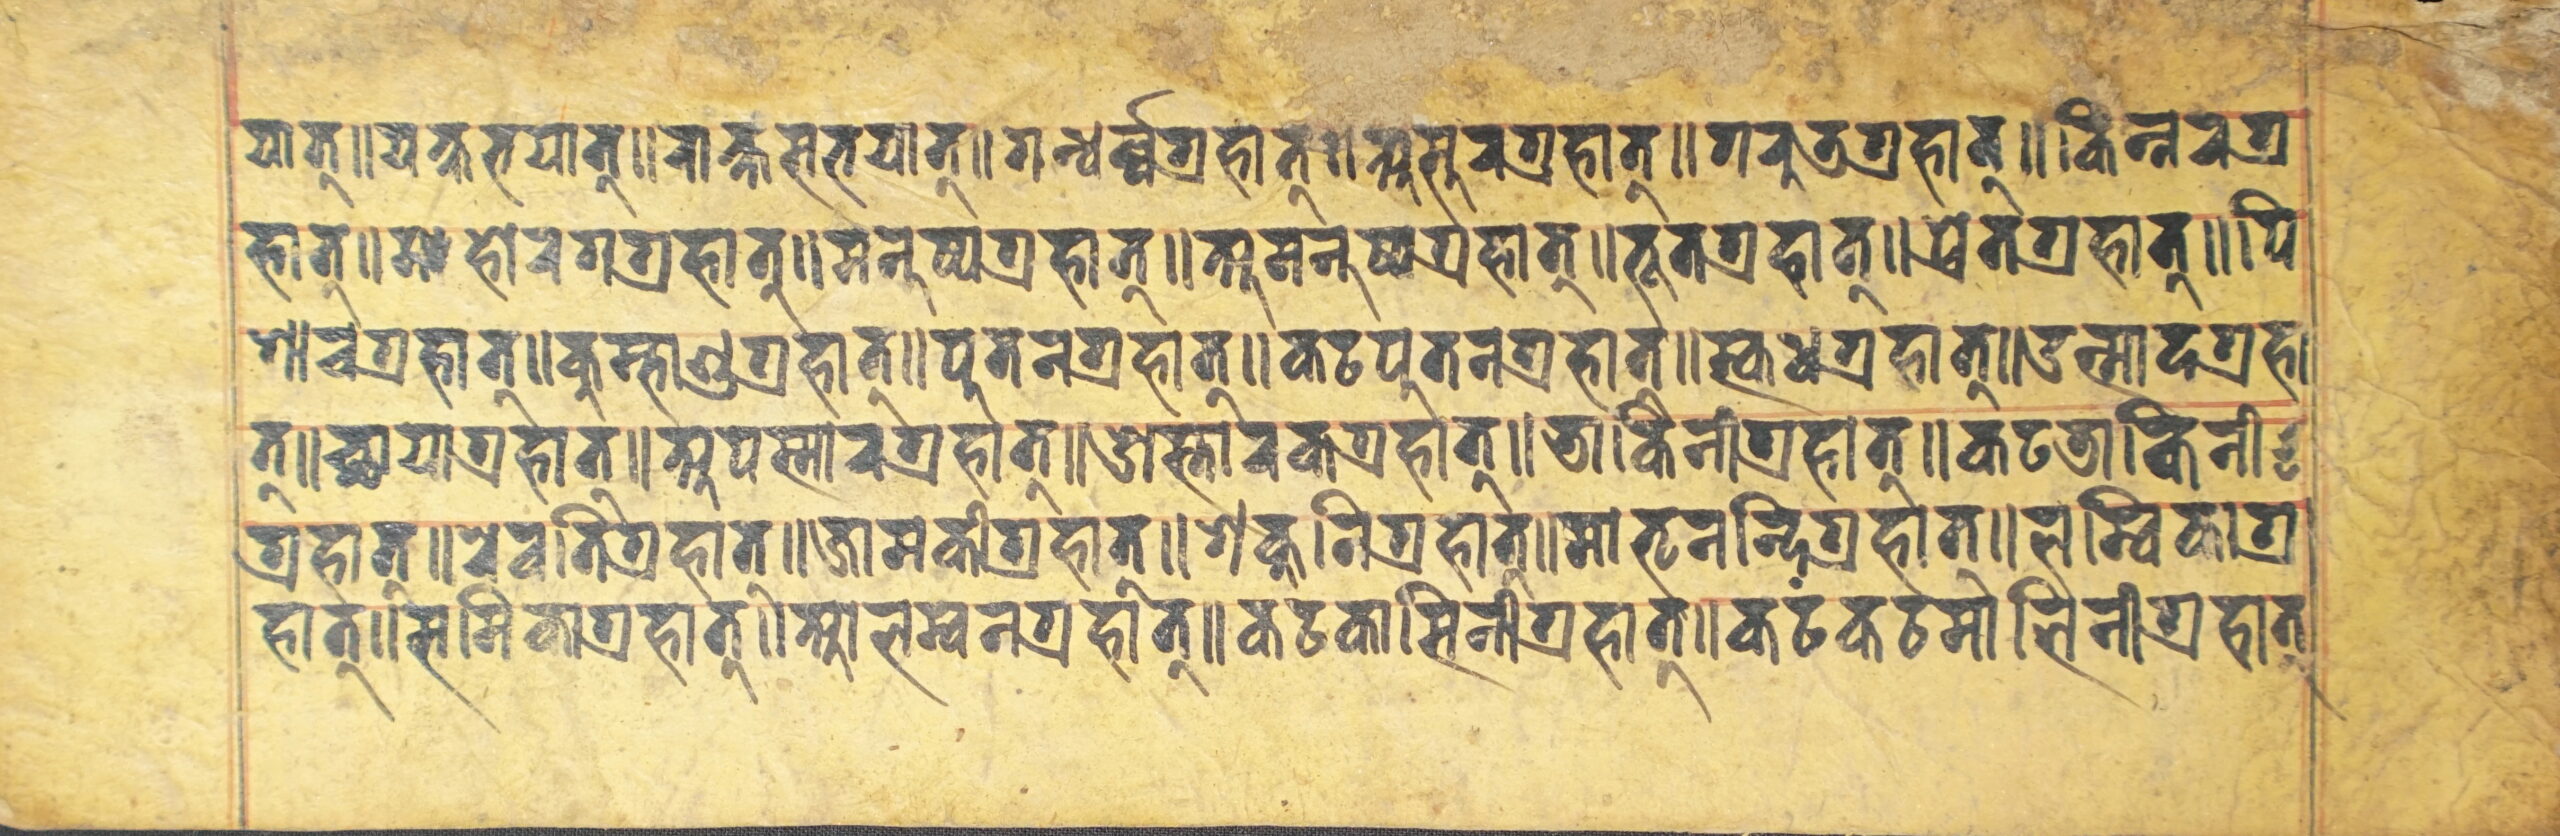 यात्॥यक्षभयात्॥राक्षसभयात्॥गन्धर्व्वग्रहात्॥असुरग्रहात्॥गरुडग्रहात्॥किन्नरग्र
हात्॥महोरगग्रहात्॥मनुष्यग्रहात्॥अमनुष्यग्रहात्॥भूतग्रहात्॥प्रेतग्रहात्॥पि
शाचग्रहात्॥कुम्भाण्डग्रहात्॥पुतनग्रहात्॥कटपुतनग्रहात्॥स्कन्धग्रहात्॥उन्मादग्रहा
त्॥च्छायाग्रहात्॥अपस्मारग्रहात्॥ओस्तारकग्रहात्॥डाकिनीग्रहात्॥कटडाकिनी
ग्रहात्॥रेवतिग्रहात्॥जामकीग्रहात्॥शकुनिग्रहात्॥मातृनन्दिग्रहात्॥लम्विकाग्र
हात्॥समिकाग्रहात्॥आलम्वनग्रहात्॥कटकासिनीग्रहात्॥कटंकटमालिनीग्रहात्